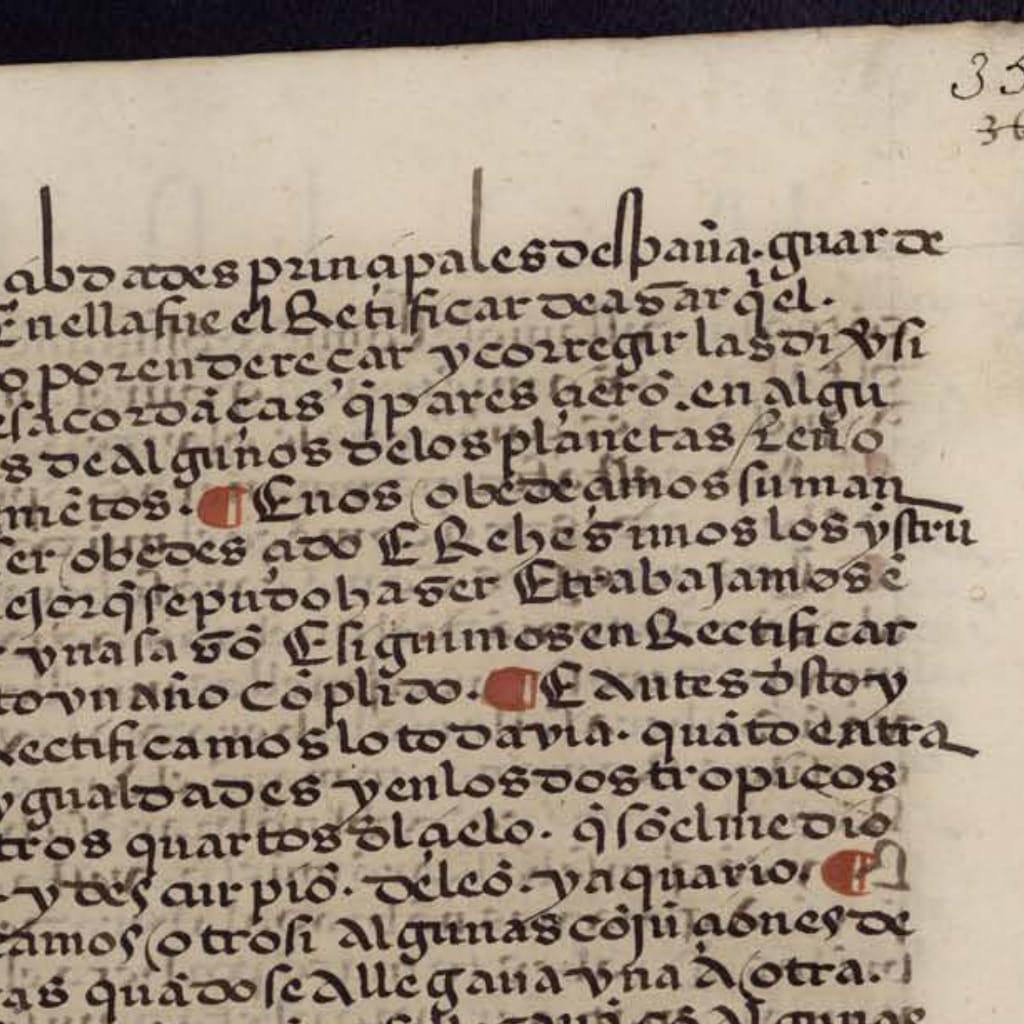 35
36
çibdades prinçipales despaña. guarde
E nella fue el Retificar de asarq̃el.
o por endereçar y corregir las diversi
esacordãças q̃ paresçierõ. en algu
s de algunos delos planetas. e enno
mẽtos. ¶ E nos obedeçimos su man
ser obedesçido E Rehezimos los ystru
ejor q̃ se pudo hazer E trabajamos ẽ
vna sazõ E siguimos en Rectificar
to vn año cõplido. ¶ E antes dsto y
Rectificamos lo toda via. quãto entra
ygualdades y en los dos tropicos
tros quartos dl çielo. q̃ sõ el medio
y de sçurpiõ. de leõ. y aquario. ¶
camos otrosi algunas cõjũçiones de
as quãdo se allegaua vna a otra.